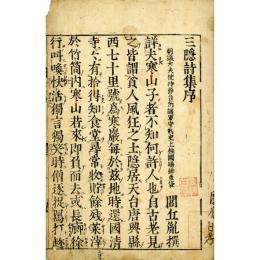 三隱詩集序
朝議大夫使持節台州諸軍事守刺史上柱國賜緋魚袋
閭丘胤撰
詳夫寒山子者不知何許人也自古老見
之皆謂貧人風狂之士隱居天台唐興縣
西七十里號為寒巖每於茲地時還國清
寺寺有拾得知食堂尋常收貯餘殘菜滓
於竹筒内寒山若來即負而去或長廊徐
行叫喚快活獨言獨笑時僧遂捉罵打趁